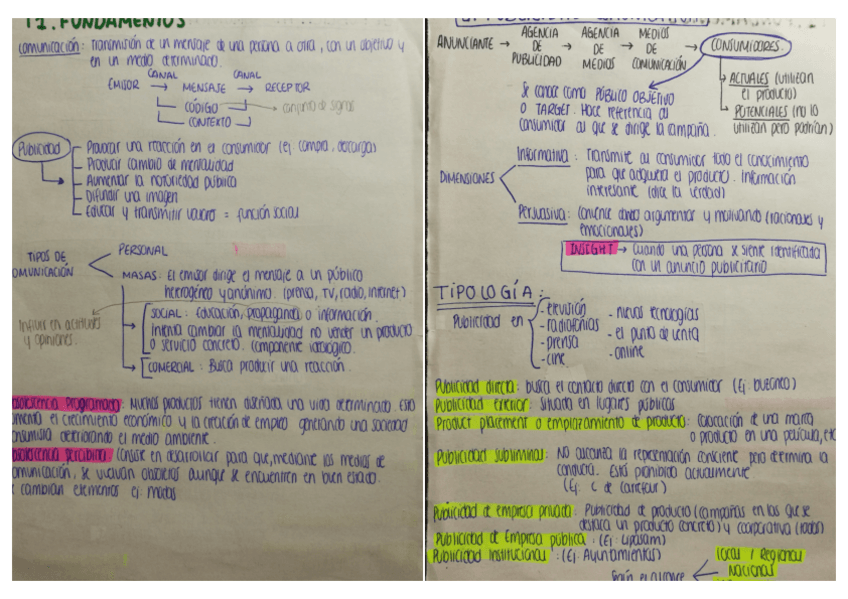 T1. FUNDAMENTOS
Comunicación: Transmisión de un mensaje de una persona a otra, con un objetivo y
en un medio determinado.
CANAL CANAL
EMISOR → MENSAJE → RECEPTOR
CÓDIGO → conjunto de signos
CONTEXTO
Publicidad
Provocar una reacción en el consumidor (ej: compra, descarga)
Producir cambio de mentalidad
Aumentar la notoriedad pública
Difundir una imagen
Educar y transmitir valores = función social
TIPOS DE
OMUNICACIÓN
PERSONAL
MASAS: El emisor dirige el mensaje a un público
heterogéneo y anónimo. (prensa, TV, radio, internet)
Influir en actitudes
y opiniones.
SOCIAL: Educación, propaganda o información.
Intenta cambiar la mentalidad no vender un producto
o servicio concreto. (componente ideológico.
COMERCIAL: Busca producir una reacción.
bsolescencia programada: Muchos productos tienen diseñada una vida determinada. Esto
omenta el crecimiento económico y la creación de empleo generando una sociedad
onsumista deteriorando el medio ambiente.
bsolescencia percibida: Consiste en desarrollar para que, mediante los medios de
omunicación, se vuelvan obsoletos aunque se encuentren en buen estado.
e cambian elementos ej: modas
ANUNCIANTE → AGENCIA DE PUBLICIDAD → AGENCIA DE MEDIOS → MEDIOS DE COMUNICACIÓN → CONSUMIDORES
ACTUALES (utilizan
el producto)
POTENCIALES (no lo
utilizan pero podrían)
Se conoce como PÚBLICO OBJETIVO
o TARGET. Hace referencia al
consumidor al que se dirige la campaña.
DIMENSIONES
Informativa: Transmite al consumidor todo el conocimiento
para que adquiera el producto. Información
interesante (dice la verdad)
Persuasiva: Convence dando argumentar y motivando (racionales y
emocionales)
INSIGHT → Cuando una persona se siente identificada
con un anuncio publicitario
TIPOLOGÍA:
Publicidad en
- televisión
- radiofonías
- prensa
- cine
- nuevas tecnologías
- el punto de venta
- online
Publicidad directa: busca el contacto directo con el consumidor (Ej: buzoneo)
Publicidad exterior: situada en lugares públicos.
Product placement o emplazamiento de producto: colocación de una marca
o producto en una película, etc
Publicidad subliminal: No alcanza la representación consciente pero determina la
conducta. Está prohibida actualmente
(Ej: C de Carrefour)
Publicidad de empresa privada: Publicidad de producto (campañas en las que se
destaca un producto concreto) y coorporativa (todos)
Publicidad de Empresa pública: (Ej: Lipasam)
Publicidad Institucional: (Ej: Ayuntamientos)
Según el alcance
Local / Regional
Nacional